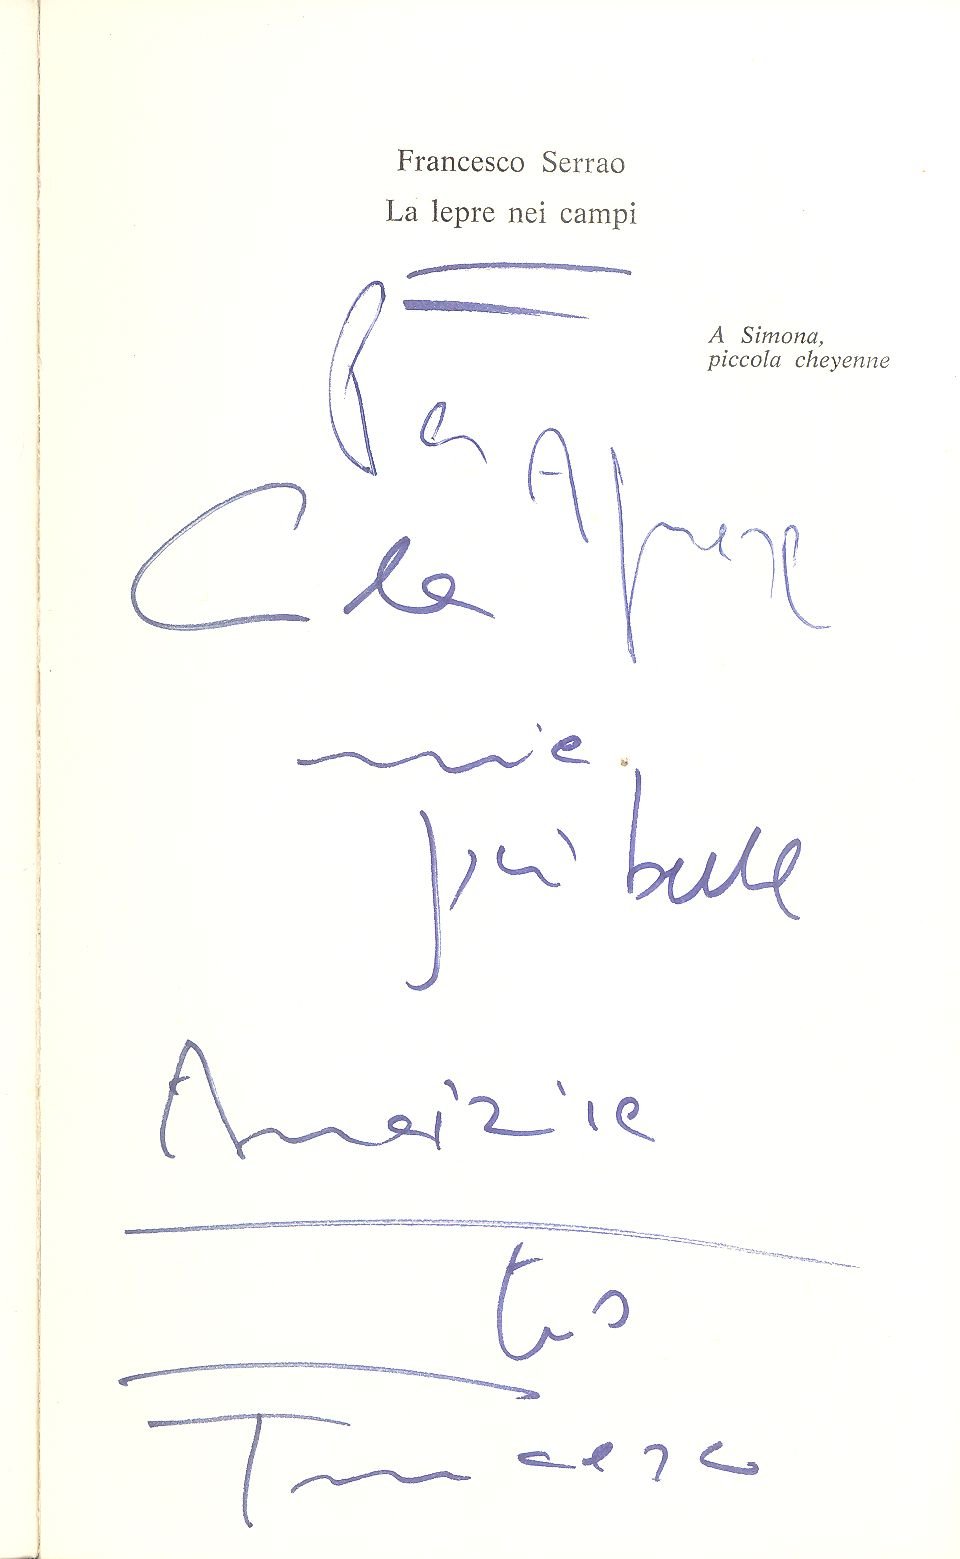 Francesco Serrao
La lepre nei campi
A Simona,
piccola cheyenne
mia
più bella
Amicizia
tuo
Francesco